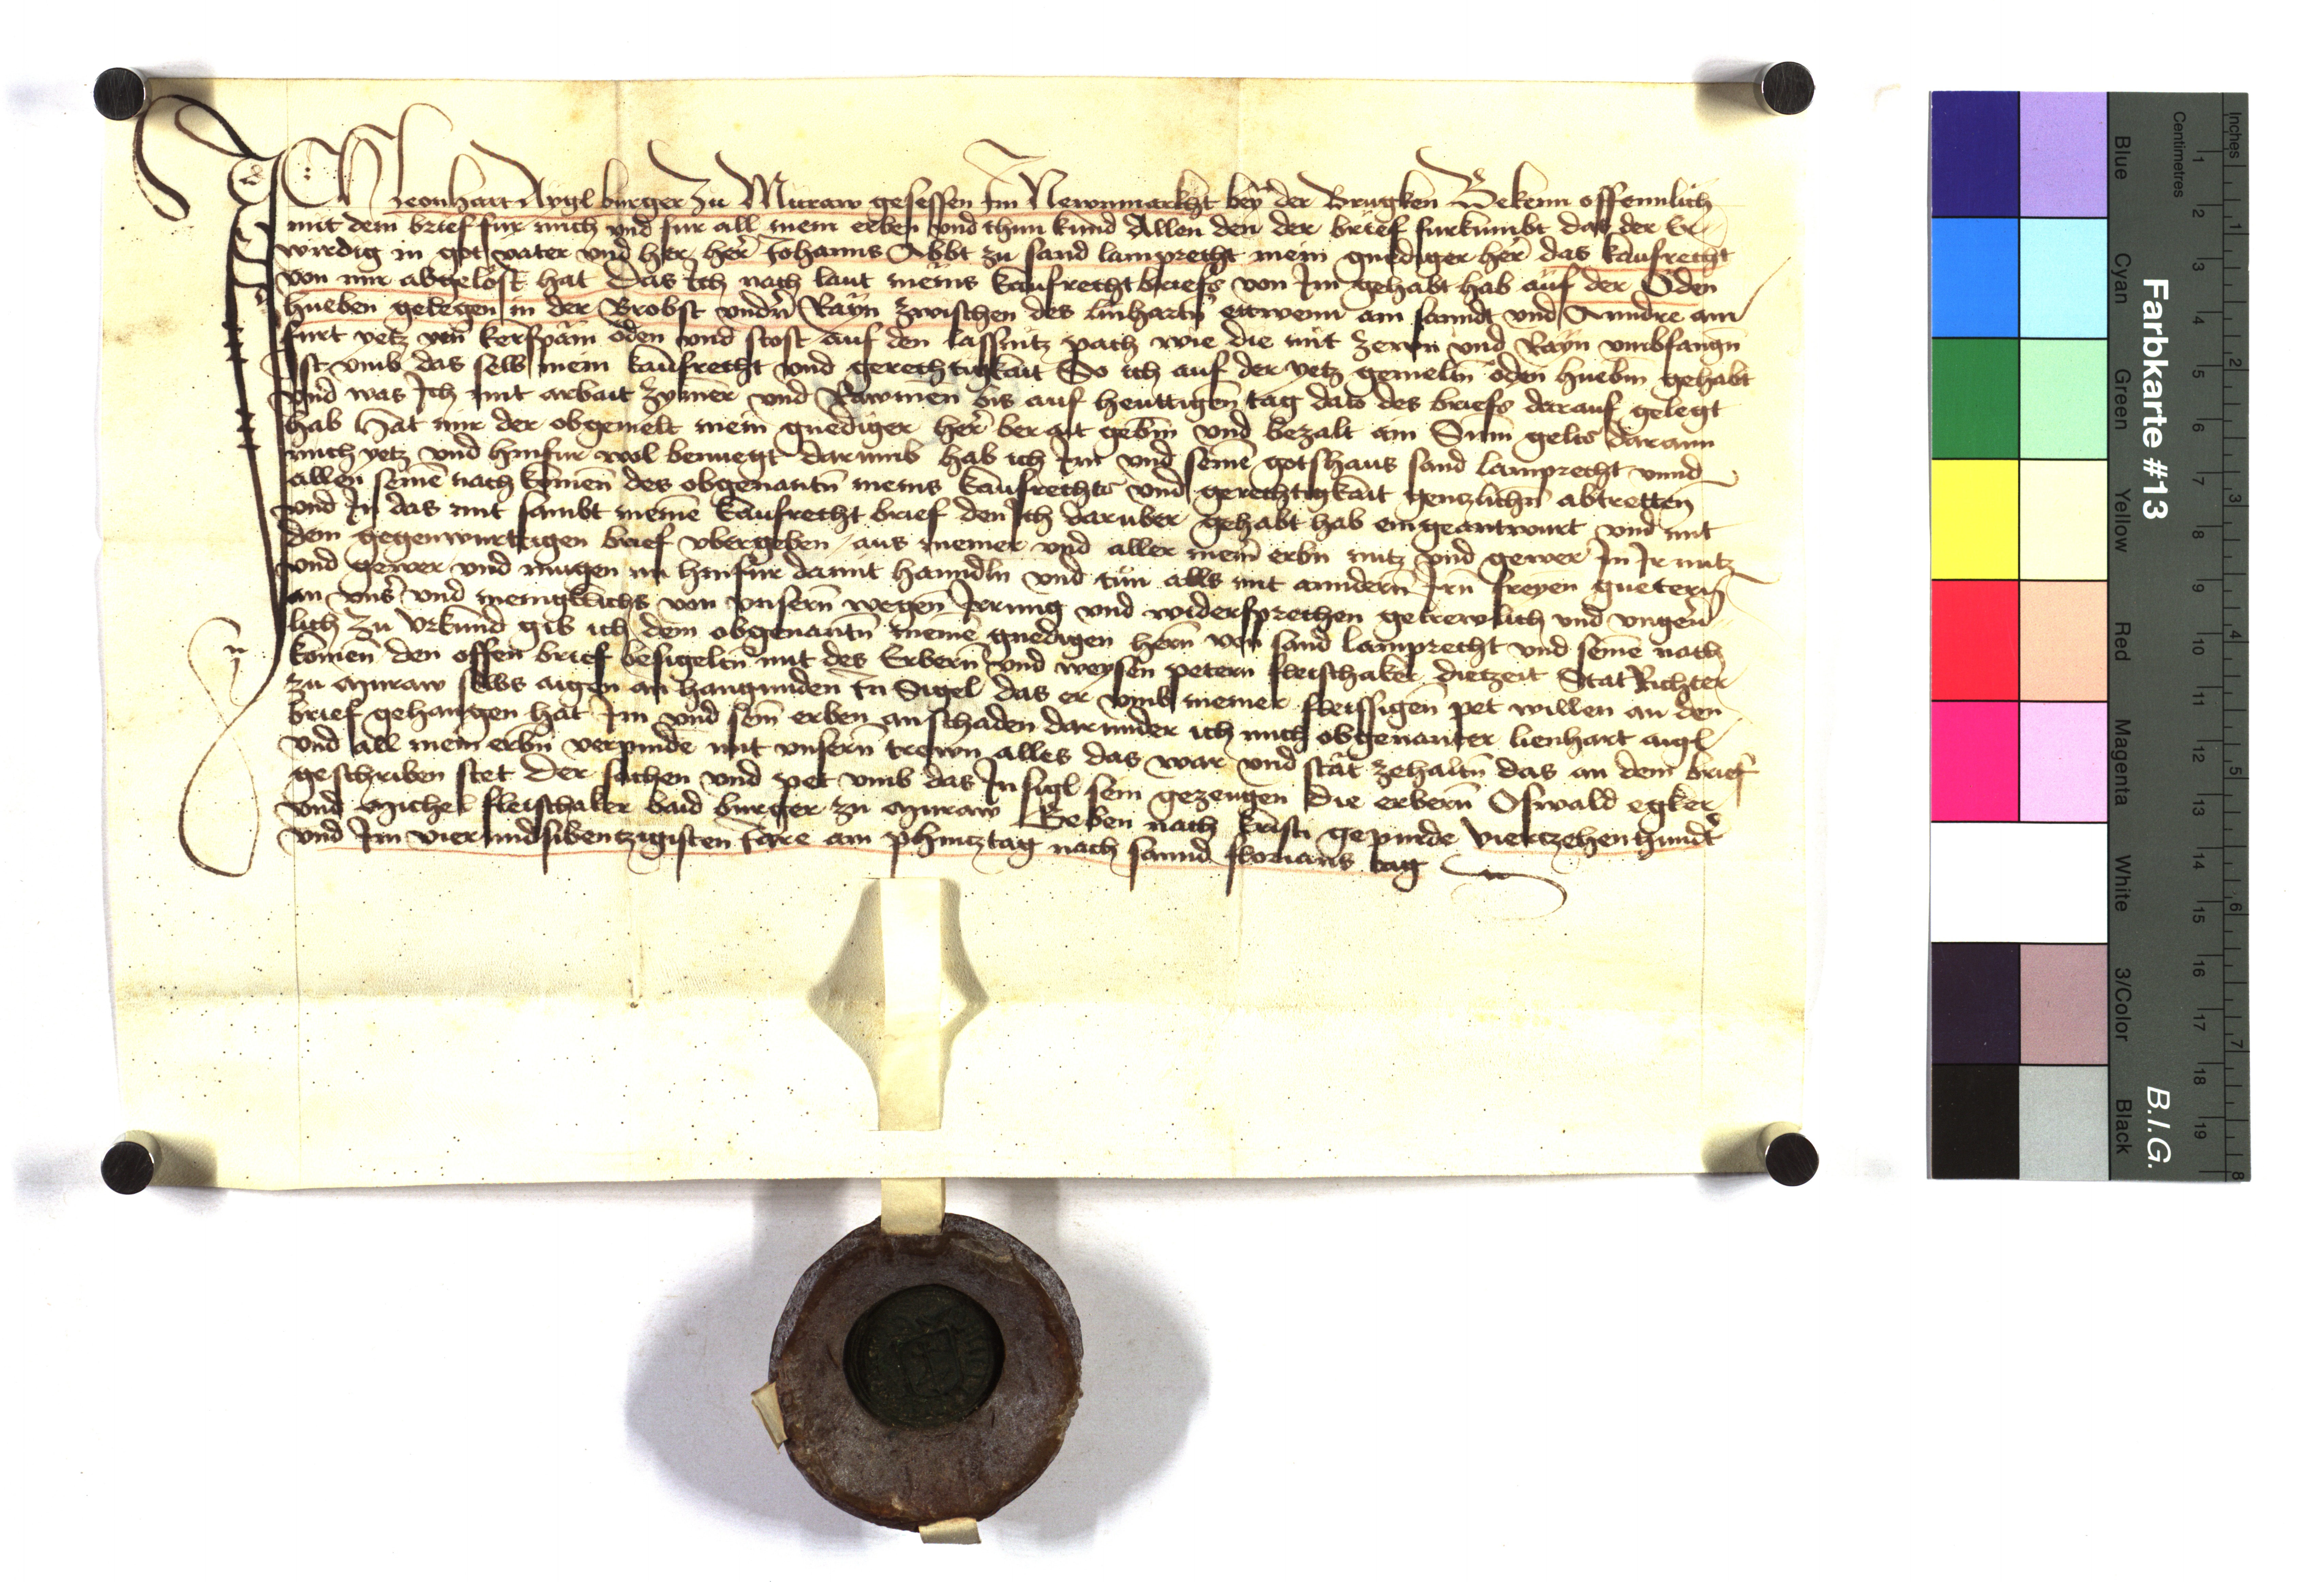 Ich Leonhart Aygl burger zu Muraw gesessen Im Newnmarkht bey der Brugken Bekenn offennlich
mit dem brief fur mich vnd fur all mein erben vnd thun kund Allen den der brief furkumbt das der Er
wirdig in got vater vnd her her Johanns Abbt zu sand lamprecht mein gnediger her das kaufrecht
von mir abgelost hat Das Ich nach laut meins kaufrechtbriefs von Im gehabt hab auf der Öden
hueben gelegen in der Brobst vndn Rayn zwischen des linhartn ettwenn am sanndt vnd Anndre am
furt yetz von kerspam öden vnd stost auf den lassnitz pach wie die mit zewn vnd Rayn vmbfangn
Ist vmb das selb mein kaufrecht vnd gerechtigkait So ich auf der yetz gemeltn öden huebm gehabt
vnd was Ich mit arbait zymer vnd Rawmen bis auf heuttigen tag dato des briefs darauf gelegt
hab Hat mir der obgemelt mein gnediger her berait gebm vnd bezalt ain Sum gelts daran
mich yetz vnd hinfur wol benuegt darumb hab ich Im vnd seine gotshaus sand lamprecht vnnd
allen seine nach komen des obgenantn meins kaufrechts vnd gerechtigkait genzlichn abtretten
vnd In das mit sambt meine kaufrecht brief den Ich daruber gehabt hab eingeantwurt vnd mit
dem gegenwurttigen brief vbergeben aus meiner vnd aller mein erbn nutz vnd gewer In Ir nutz
vnd gewer vnd mugen nu hinfur damit hanndln vnd tun alls mit anndern Irn freyen guetern
an vns vnd meingklichs von vnsern wegen Irrung vnd widersprechen getrewlich vnd vngeu
lich zu Vrkund gib ich dem obgenantn meine gnedigen hern von sand lamprecht vnd seine nach
komen den offen brief besigeltn mit des Erbern vnd weysen petern fleischaker dietzeit Stat Richter
zu Muraw selbs aigen an hangunden In Sigel das er vmb meiner fleissigen pet willen an den
brief gehangen hat Im vnd sein erben an schaden darunder ich mich obgenanter lienhart aigl
vnd all mein erbn verpinde mit vnsern trewn alles das war vnd stat zehaltn das an dem brief
geschriben stet Der sachen vnd pet vmb das Insigl sein gezeugen Die erbern Oswald egker
vnd Michel fleischaker baid burger zu Muraw Geben nach kristi gepurde Viertzehenhundt
vnd Im vier vndsibentzigisten Jare am phintztag nach sannd florians tag
Farbkarte #13
B.I.G.
Blue
Cyan
Green
Yellow
Red
Magenta
White
3/Color
Black
Centimetres
Inches
1 2 3 4 5 6 7 8 9 10 11 12 13 14 15 16 17 18 19
1 2 3 4 5 6 7 8